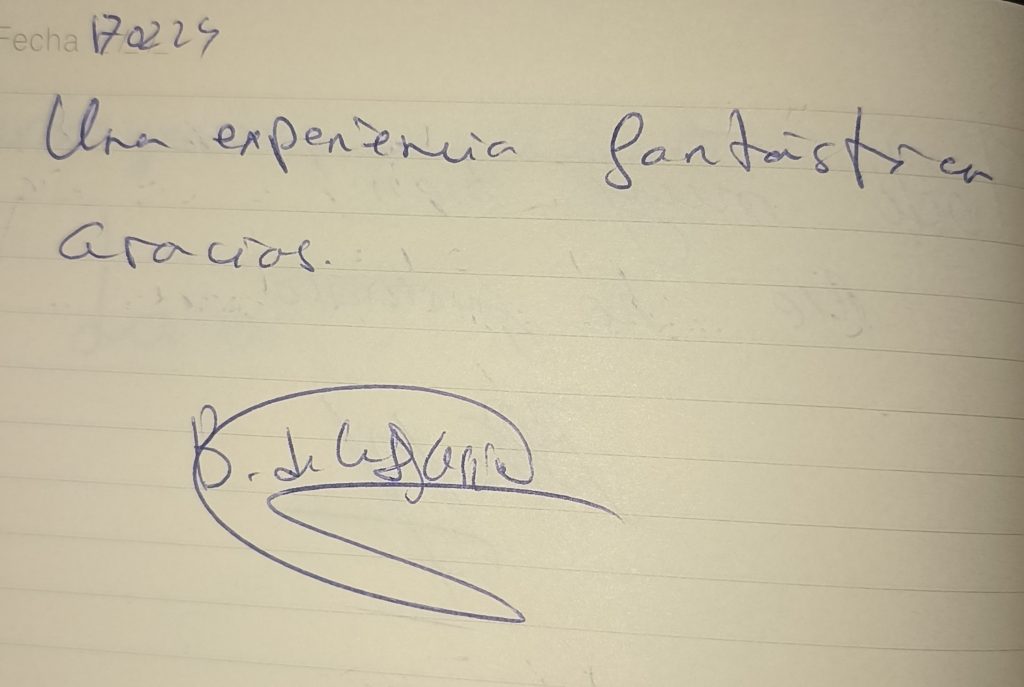 Fecha 170224
Una experiencia fantástica
Gracias.
B. de la